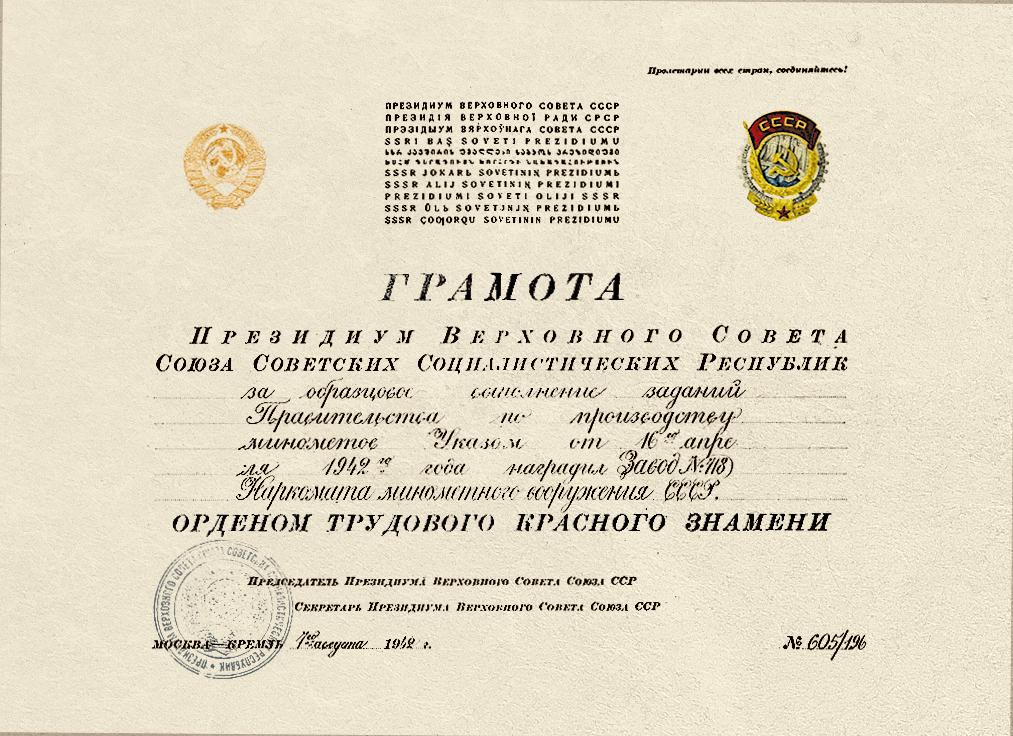 Пролетарии всех стран, соединяйтесь!
ПРЕЗИДИУМ ВЕРХОВНОГО СОВЕТА СССР
ПРЕЗИДІЯ ВЕРХОВНОЇ РАДИ СРСР
ПРЭЗІДЫУМ ВЯРХОЎНАГА СОВЕТА СССР
SSRI BAŞ SOVETI PREZIDIUMU
SSSR JOKARЬ SOVETINIꞐ PREZIDIUMЬ
SSSR ALIJ SOVETINIꞐ PREZIDIUMI
PREZIDIUMI SOVETI OLIJI SSSR
SSSR SOVETJNJꞐ PREZIDIUMЬ
SSSR ÇOƢORQU SOVETININ PREZIDIUMU
СССР
ГРАМОТА
ПРЕЗИДИУМ ВЕРХОВНОГО СОВЕТА
СОЮЗА СОВЕТСКИХ СОЦИАЛИСТИЧЕСКИХ РЕСПУБЛИК
за образцовое выполнение заданий
Правительства по производству
минометов Указом от 16го апре
ля 1942го года наградил Завод №718)
Наркомата минометного вооружения СССР.
ОРДЕНОМ ТРУДОВОГО КРАСНОГО ЗНАМЕНИ
ПРЕДСЕДАТЕЛЬ ПРЕЗИДИУМА ВЕРХОВНОГО СОВЕТА СОЮЗА ССР
СЕКРЕТАРЬ ПРЕЗИДИУМА ВЕРХОВНОГО СОВЕТА СОЮЗА ССР
МОСКВА—КРЕМЛЬ 7го августа 1942 г.
№ 605/196